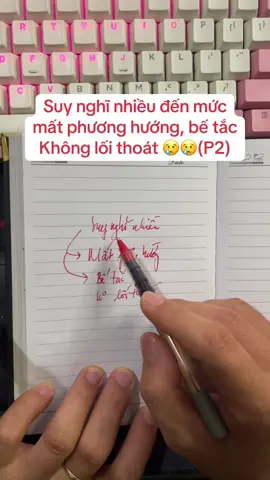 Suy nghĩ nhiều đến mức
mất phương hướng, bế tắc
Không lối thoát 😢😢(P2)
Suy nghĩ nhiều
Mất hướng
Bế tắc
lối